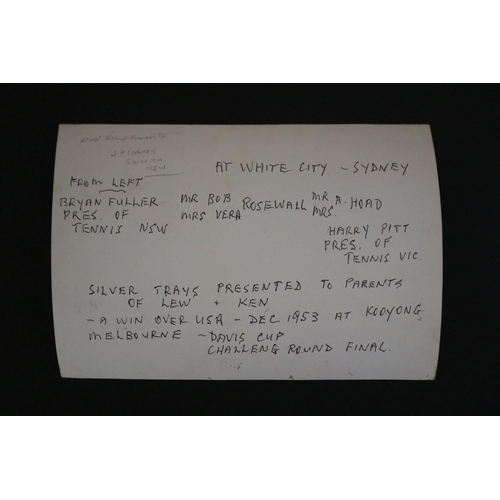 AT WHITE CITY - SYDNEY
FROM LEFT
BRYAN FULLER MR BOB ROSEWALL MR A. HOAD
PRES. OF MRS VERA MRS.
TENNIS NSW HARRY PITT
PRES. OF
TENNIS VIC.
SILVER TRAYS PRESENTED TO PARENTS
OF LEW + KEN
- A WIN OVER USA - DEC 1953 AT KOOYONG
MELBOURNE - DAVIS CUP
CHALLENG ROUND FINAL.